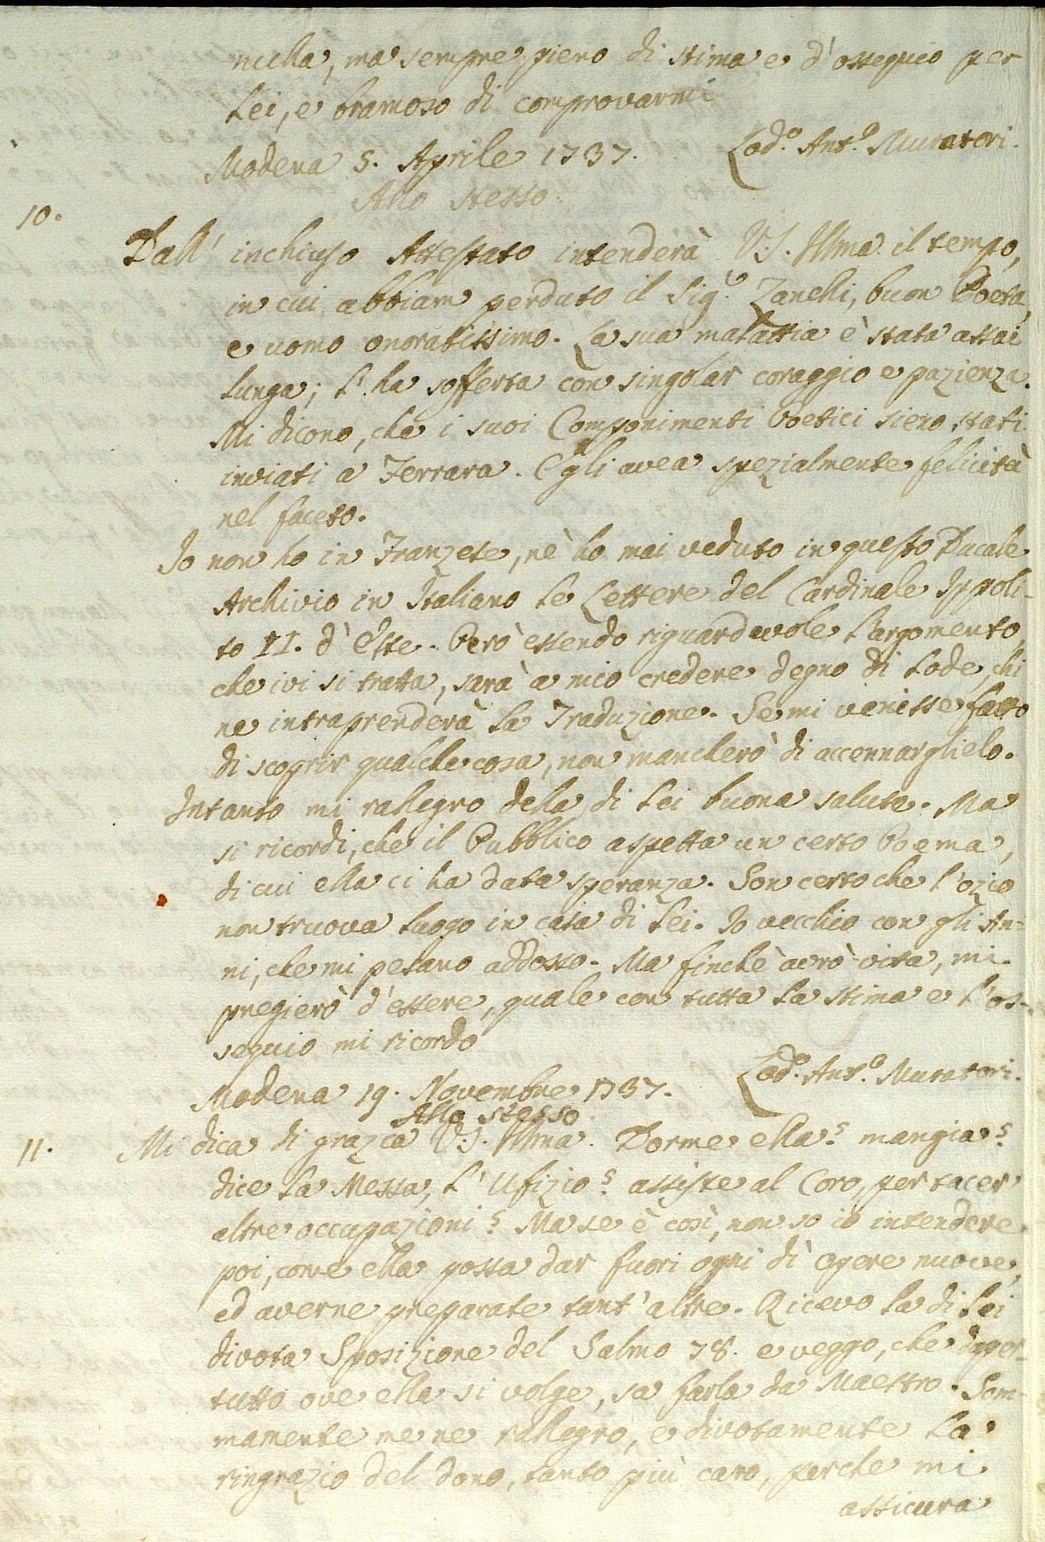 nulla, ma sempre pieno di stima e d'ossequio per
Lei, e bramoso di comprovarmi
Modena 5. Aprile 1737. Lod.º Ant.º Muratori.
Allo stesso
10.
Dall' inchiuso Attestato intenderà V.S. Illma. il tempo,
in cui abbiam perduto il Sig.º Zanchi, buon Poeta,
e uomo onoratissimo. La sua malattia è stata assai
lunga; l'ha sofferta con singolar coraggio e pazienza.
Mi dicono, che i suoi Componimenti Poetici sieno stati
inviati a Ferrara. Egli avea spezialmente felicità
nel faceto.
Io non ho in Franzese, nè ho mai veduto in questo Ducale
Archivio in Italiano le Lettere del Cardinale Ippoli-
to II. d'Este. Però essendo riguardevole l'argomento,
che ivi si tratta, sarà a mio credere degno di lode, chi
ne intraprenderà la Traduzione. Se mi venisse fatto
di scoprir qualche cosa, non mancherò di accennarglielo.
Intanto mi rallegro della di Lei buona salute. Ma
si ricordi, che il Pubblico aspetta un certo Poema,
di cui ella ci ha data speranza. Son certo che l'ozio
non truova luogo in casa di Lei. Io vecchio con gli An-
ni, che mi pesano addosso. Ma finchè avrò vita, mi
pregierò d'essere, quale con tutta la stima e l'os-
sequio mi ricordo
Modena 19. Novembre 1737. Lod.º Ant.º Muratori.
Allo stesso
11. Mi dica di grazia V.S. Illma. Dorme ella? mangia?
dice la Messa, l'Ufizio? assiste al Coro, per tacer
altre occupazioni? Ma se è così, non so io intendere
poi, come ella possa dar fuori ogni dì opere nuove,
ed averne preparate tant'altre. Ricevo la di Lei
divota Sposizione del Salmo 78. e veggo, che dapper-
tutto ove ella si volge, sa farla da Maestro. Som-
mamente me ne rallegro, e divotamente La
ringrazio del dono, tanto più caro, perche mi
assicura